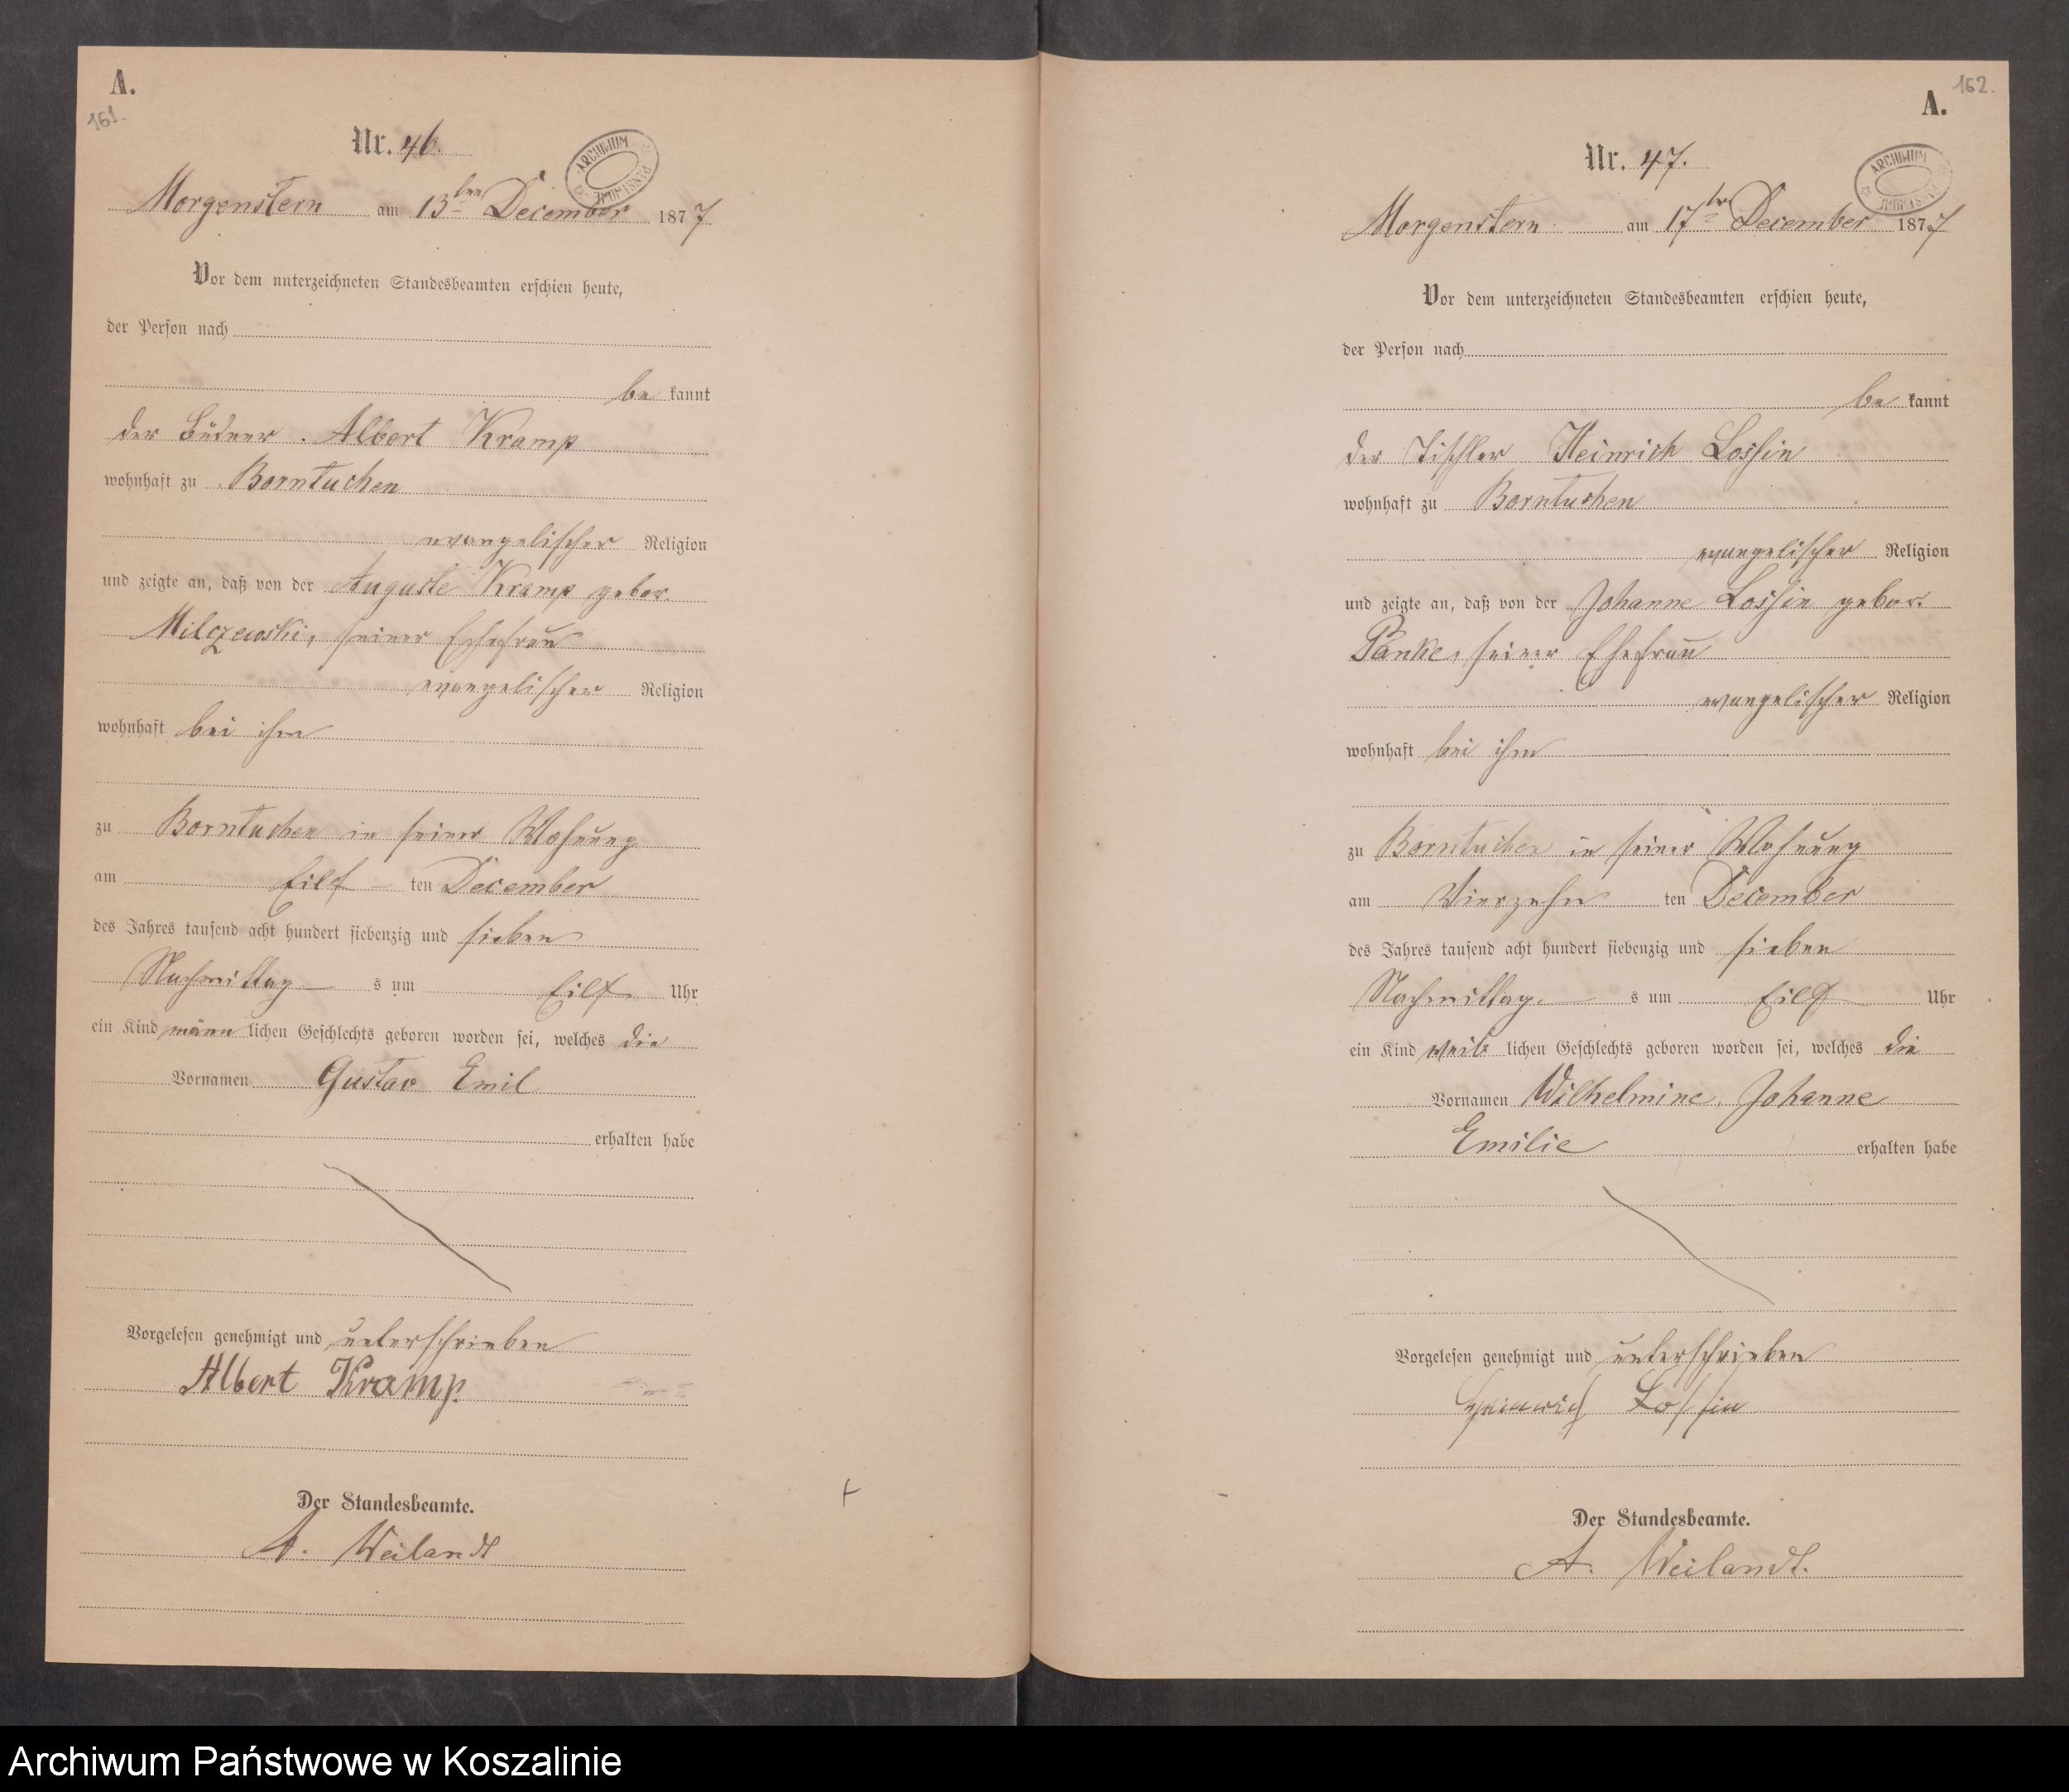 A.
161.
Nr. 46.
ARCHIWUM PAŃSTWOWE
Morgenstern am 13ten December 1877
Vor dem unterzeichneten Standesbeamten erschien heute,
der Person nach
be kannt
der Büdner Albert Kramp
wohnhaft zu Borntuchen
evangelischer Religion
und zeigte an, daß von der Auguste Kramp gebor.
Milczewski, seiner Ehefrau
evangelischer Religion
wohnhaft bei ihm
zu Borntuchen in seiner Wohnung
am Eilf ten December
des Jahres tausend acht hundert siebenzig und sieben
Nachmittag s um Eilf Uhr
ein Kind männ lichen Geschlechts geboren worden sei, welches die
Vornamen Gustav Emil
erhalten habe
Vorgelesen genehmigt und unterschrieben
Albert Kramp.
Der Standesbeamte.
A. Weilandt
162.
A.
Nr. 47.
ARCHIWUM PAŃSTWOWE
Morgenstern am 17ten December 1877
Vor dem unterzeichneten Standesbeamten erschien heute,
der Person nach
be kannt
der Tischler Heinrich Lossin
wohnhaft zu Borntuchen
evangelischer Religion
und zeigte an, daß von der Johanne Lossin gebor.
Panke, seiner Ehefrau
evangelischer Religion
wohnhaft bei ihm
zu Borntuchen in seiner Wohnung
am Vierzehn ten December
des Jahres tausend acht hundert siebenzig und sieben
Nachmittag s um Eilf Uhr
ein Kind weib lichen Geschlechts geboren worden sei, welches die
Vornamen Wilhelmine, Johanne
Emilie erhalten habe
Vorgelesen genehmigt und unterschrieben
Heinrich Lossin
Der Standesbeamte.
A. Weilandt.
Archiwum Państwowe w Koszalinie